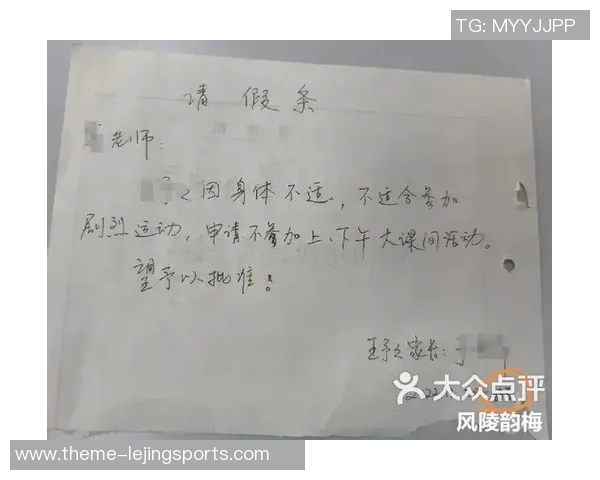 TG: MYYJJPP
请假条
老师：
因身体不适，不适合参加
剧烈运动，申请不参加上、下午大课间活动。
望予以批准！
家长：
大众点评
风陵韵梅
www.theme-lejingsports.com